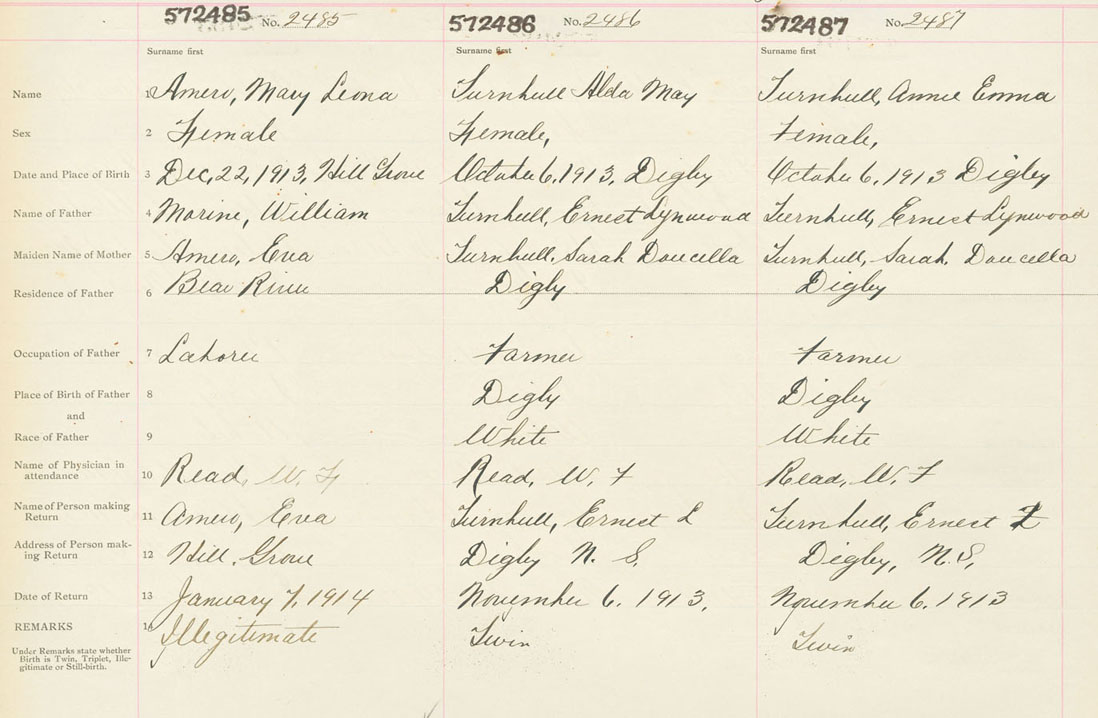 572485 No. 2485 572486 No. 2486 572487 No. 2487
Surname first Surname first Surname first
Name 1 Amero, Mary Leona Turnbull Alda May Turnbull, Annie Emma
Sex 2 Female Female, Female,
Date and Place of Birth 3 Dec, 22, 1913, Hill Grove October 6, 1913, Digby October 6, 1913 Digby
Name of Father 4 Morine, William Turnbull, Ernest Lynwood Turnbull, Ernest Lynwood
Maiden Name of Mother 5 Amero, Eva Turnbull, Sarah Doucella Turnbull, Sarah, Doucella
Residence of Father 6 Bear River Digby Digby
Occupation of Father 7 Laborer Farmer Farmer
Place of Birth of Father 8 Digby Digby
and
Race of Father 9 White White
Name of Physician in
attendance 10 Read, W. F Read, W. F Read, W. F
Name of Person making
Return 11 Amero, Eva Turnbull, Ernest L Turnbull, Ernest L
Address of Person mak-
ing Return 12 Hill, Grove Digby N. S. Digby, N.S,
Date of Return 13 January 7, 1914 November 6. 1913, November 6, 1913
REMARKS 14 Illegitimate Twin Twin
Under Remarks state whether
Birth is Twin, Triplet, Ille-
gitimate or Still-birth.